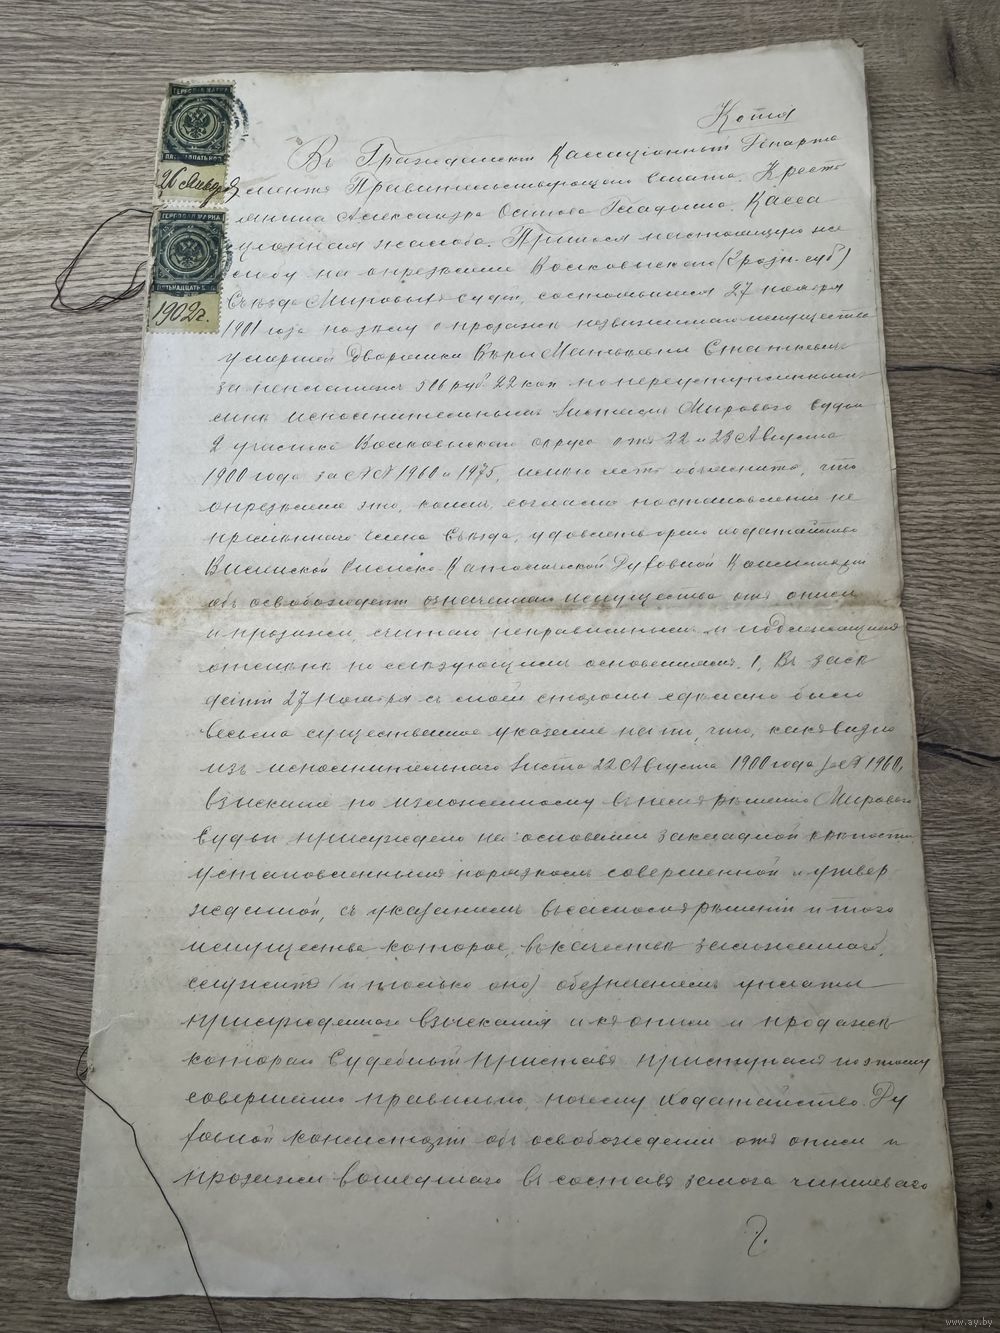 Копія
Въ Гражданскій Кассаціонный Департа
ГЕРБОВАЯ МАРКА
ПЯТНАДЦАТЬ КОП.
26 Янв
мента Правительствующаго Сената. Кресть
янина Александра Осипова Гладыша. Касса
ГЕРБОВАЯ МАРКА
ціонная жалоба. Принося настоящую жа
ПЯТНАДЦАТЬ К.
лобу на опредѣленіе Волковыскаго (Гродн. губ.)
1902 г.
Съѣзда Мировыхъ Судей, состоявшееся 27 ноября
1901 года по дѣлу о продажѣ недвижимаго имущества
умершей Дворянки Вѣры Матвѣевны Станкевичъ
за неплатежъ 516 руб. 22 коп. по переуступленнымъ
мнѣ исполнительнымъ листамъ Мирового Судьи
2 участка Волковыскаго округа отъ 22 и 23 Августа
1900 года за №№ 1960 и 1975, имѣю честь объяснить, что
опредѣленіе это, коимъ, согласно постановленія не
премѣннаго члена Съѣзда, удовлетворено ходатайство
Виленской Римско-Католической Духовной Консисторіи
объ освобожденіи означеннаго имущества отъ описи
и продажи, считаю неправильнымъ и подлежащимъ
отмѣнѣ по слѣдующимъ основаніямъ. 1, Въ засѣ
даніи 27 Ноября съ моей стороны сдѣлано было
весьма существенное указаніе на то, что, какъ видно
изъ исполнительнаго листа 22 Августа 1900 года за № 1960,
взысканіе по изложенному въ немъ рѣшенію Мирового
Судьи присуждено на основаніи закладной крѣпости
установленнымъ порядкомъ совершенной и утвер
жденной, съ указаніемъ въ самомъ рѣшеніи и того
имущества, которое, въ качествѣ заложеннаго,
служитъ (и только оно) обезпеченіемъ уплаты
присужденнаго взысканія и къ описи и продажѣ
котораго Судебный Приставъ приступилъ поэтому
совершенно правильно, почему ходатайство Ду
ховной консисторіи объ освобожденіи отъ описи и
продажи вошедшаго въ составъ залога чиншевого
www.ay.by